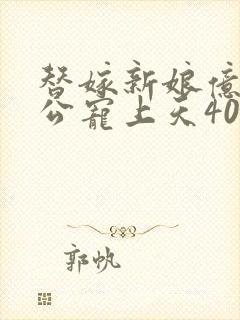 替嫁新娘亿
公宠上天40
郭帆